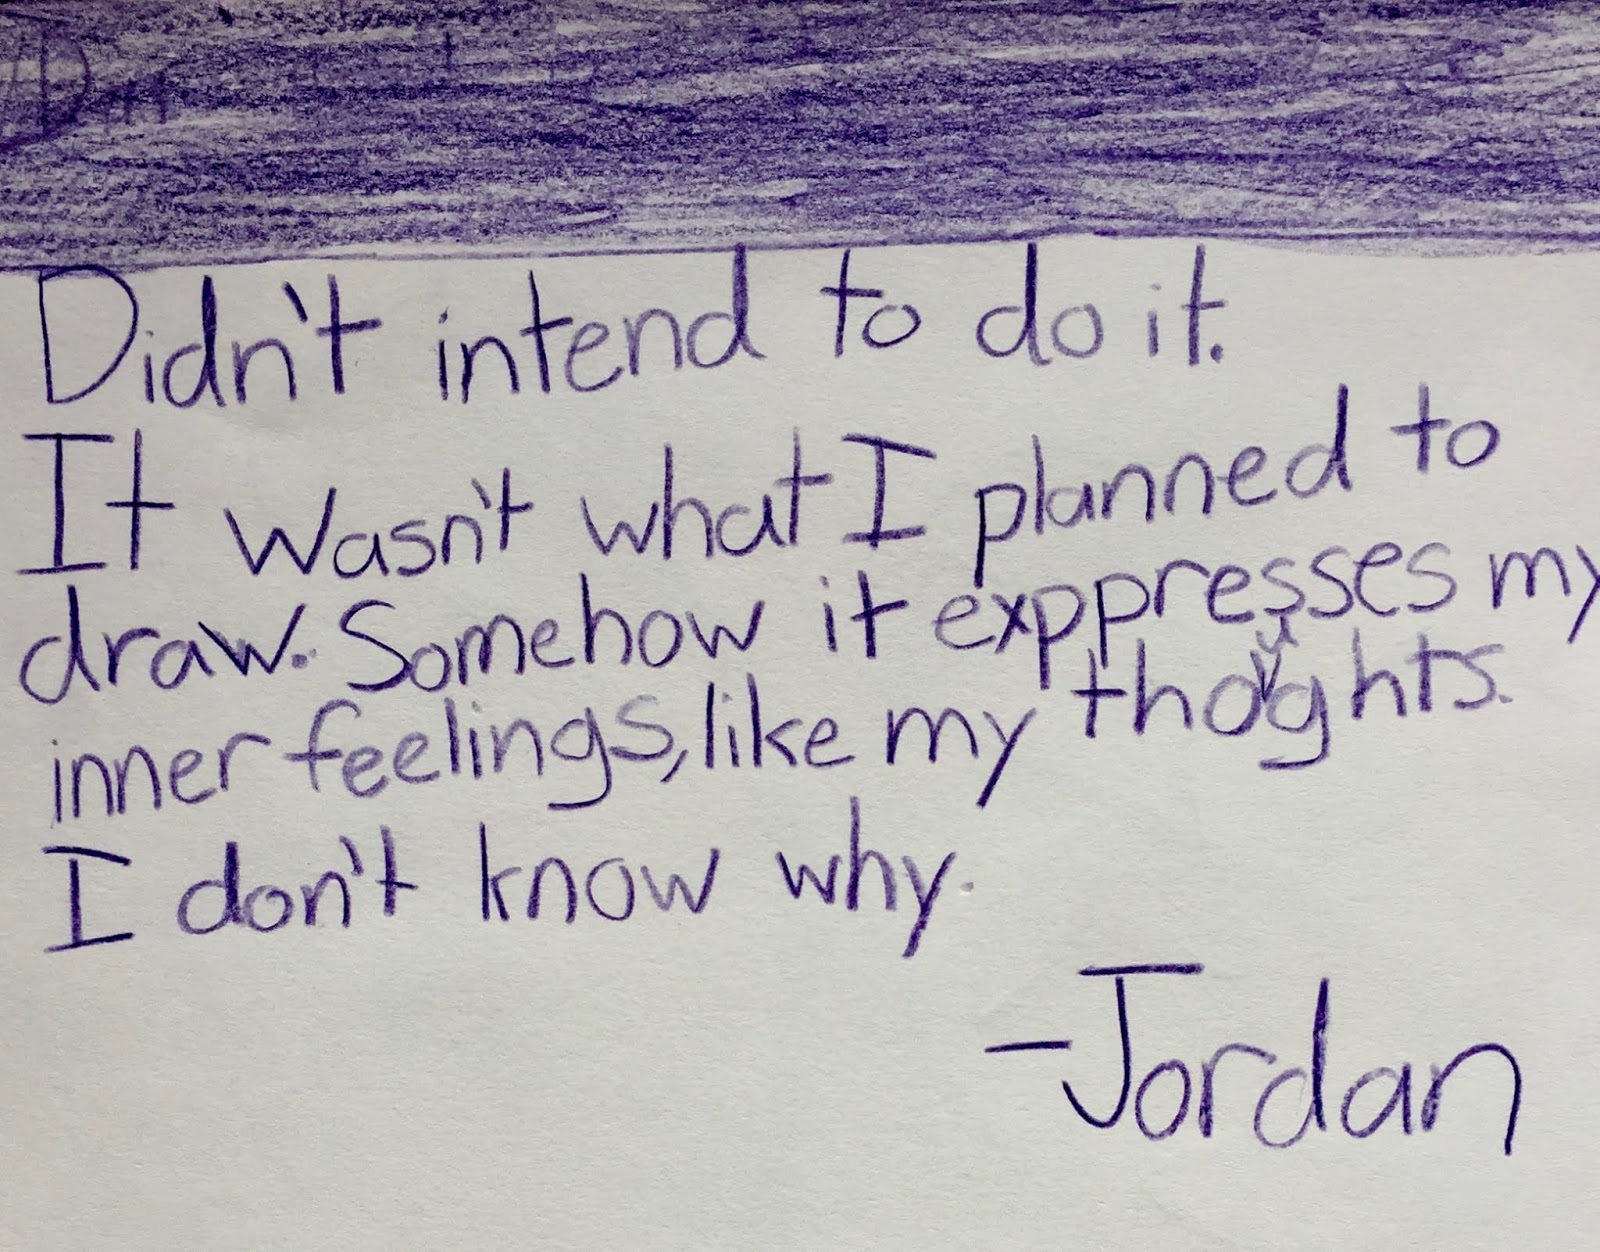 Didn't intend to do it.
It wasn't what I planned to
draw. Somehow it exppresses my
inner feelings, like my thoughts.
I don't know why.
-Jordan